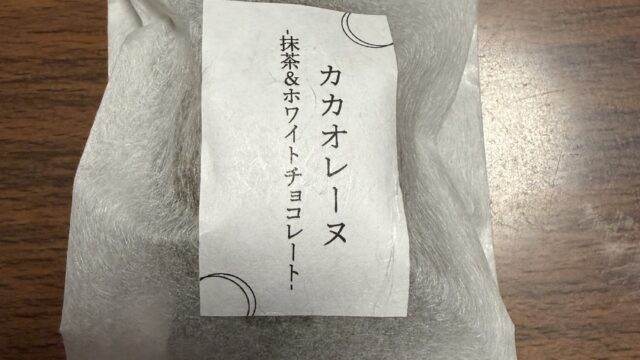 カカオレーヌ
-抹茶&ホワイトチョコレート-